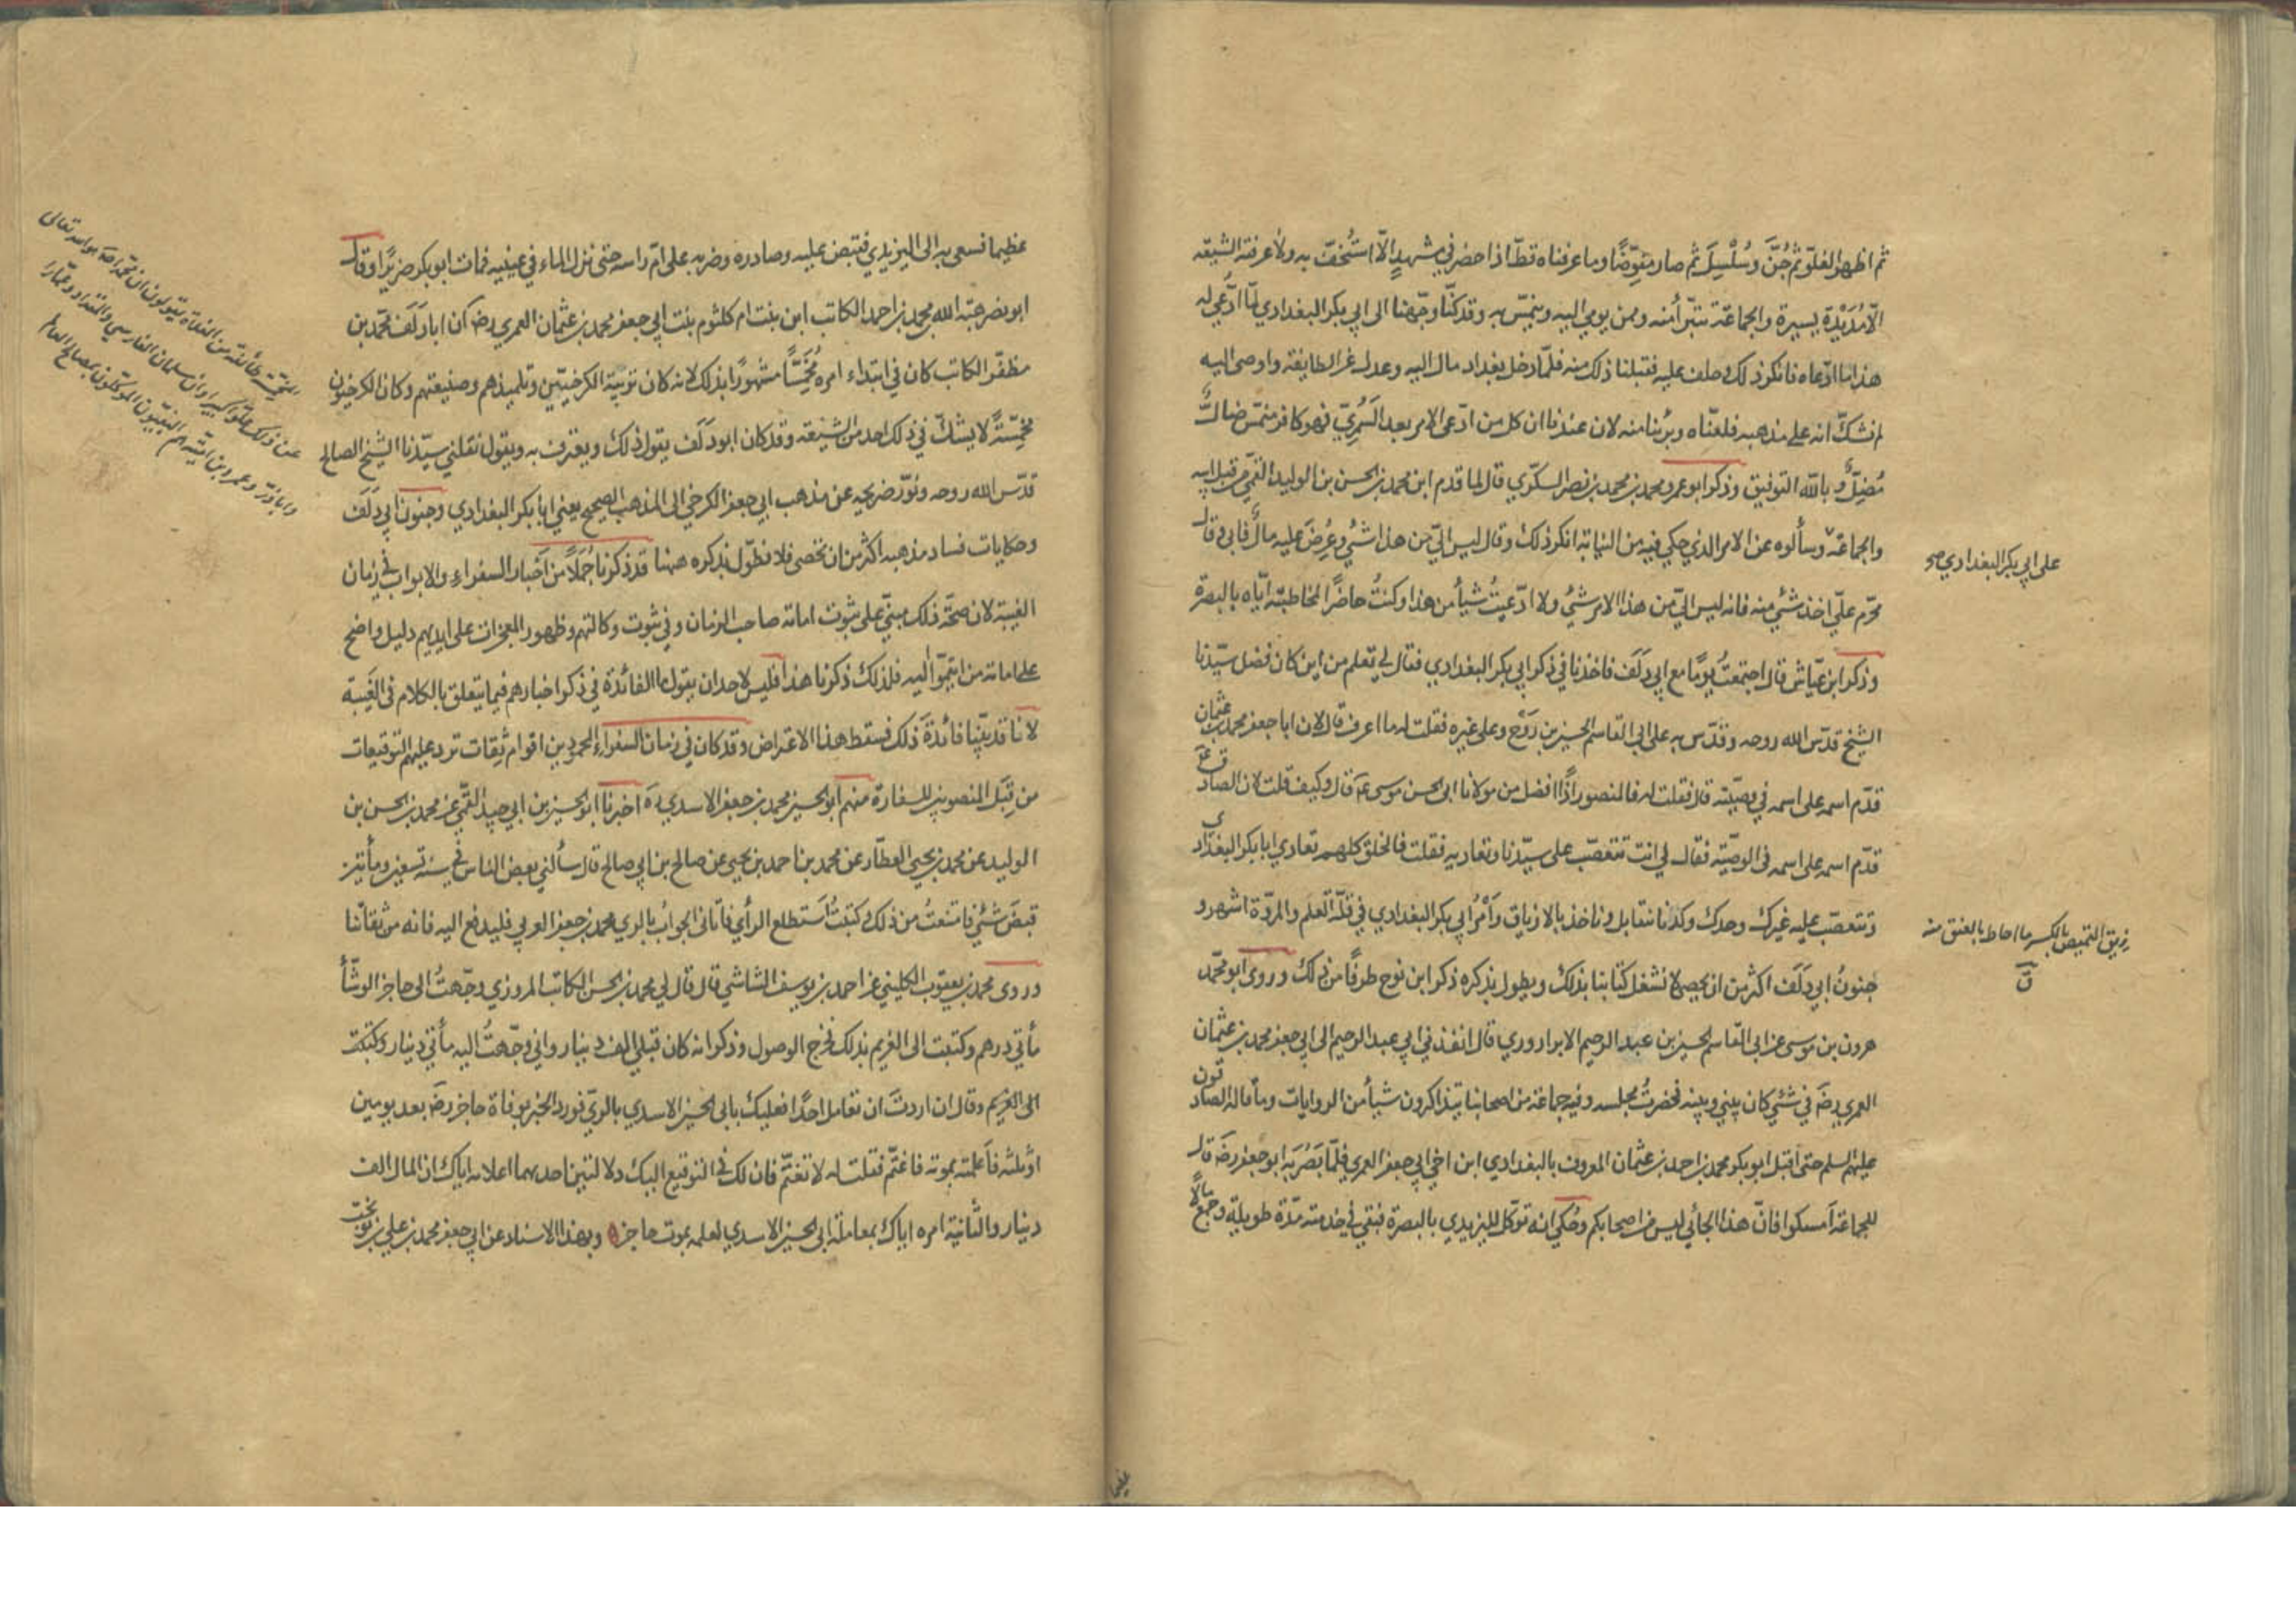 ثم اظهر الغلوّ ثم جُنَّ وسُلْسِلَ ثم صار مفوِّضًا وما عرفناه قطّ اذا حضر في مشهدٍ الّا استُخفّ به ولا عرفته الشيعة
الّا مُدَيْدَة يسيرة والجماعة تتبرّأ منه وممن يومي اليه وينمّس به وقد كنّا وجّهنا الى ابي بكر البغدادي لمّا ادّعي له
هذا ما ادّعاه فانكر ذلك وحلف عليه فقبلنا ذلك منه فلمّا دخل بغداد مال اليه وعدل عن الطايفة واوصى اليه
لم نشكّ انه على مذهبه فلعنّاه وبرئنا منه لان عندنا ان كل من ادّعى الامر بعد السَّمُريّ فهو كافر منمّس ضالٌّ
مُضِلٌّ وبالله التوفيق وذكر ابو عمرو محمد بن محمد بن نصر السكّري قال لما قدم ابن محمد بن الحسن بن الوليد القمّي من قبل ابيه
والجماعة وسألوه عن الامر الذي حكي فيه من النيابة انكر ذلك وقال ليس اليّ من هذا شئ وعُرِضَ عليه مال فابى وقال
محرّم عليّ اخذ شئ منه فانه ليس اليّ من هذا الامر شئ ولا ادّعيتُ شيأ من هذا وكنتُ حاضرًا لمخاطبته ايّاه بالبصرة
وذكر ابن عيّاش قال اجتمعتُ يومًا مع ابي دَلَف فاخذنا في ذكر ابي بكر البغدادي فقال لي تعلم من اين كان فضل سيّدنا
الشيخ قدّس الله روحه وقدّس به على ابي القاسم الحسين بن رَوْح وعلى غيره فقلت له ما اعرف قال لان ابا جعفر محمد بن عثمان
قدّم اسمه على اسمه في وصيّته قال فقلت له فالمنصور اذًا افضل من مولانا ابي الحسن موسى عم قال وكيف قلت لان الصادق ع
قدّم اسمه على اسمه في الوصيّة فقال لي انت تتعصّب على سيّدنا وتعاديه فقلت فالخلق كلهم تعادي ابا بكر البغدادي
وتتعصّب عليه غيرك وحدك وكدنا نتقاتل وناخذ بالازياق وأمرُ ابي بكر البغدادي في قلّة العلم والمروّة اشهر و
جنونُ ابي دَلَف اكثر من ان يحصى لا نشغل كتابنا بذلك ويطول بذكره ذكر ابن نوح طرفًا من ذلك وروى ابو محمّد
هرون بن موسى عن ابي القاسم الحسين بن عبد الرحيم الابراروري قال انفذني ابي عبد الرحيم الى ابي جعفر محمد بن عثمان
العمري رضَ في شئ كان بيني وبينه فحضرتُ مجلسه وفيه جماعة من اصحابنا يتذاكرون شيأ من الروايات وما قاله الصادقون
عليهم السلم حتى اقبل ابو بكر محمد بن احمد بن عثمان المعروف بالبغدادي ابن اخي ابي جعفر العمري فلمّا بَصُرَ به ابو جعفر رضَ قال
للجماعة اَمسكوا فانّ هذا الجائي ليس من اصحابكم وحُكي انه توكّل لليزيدي بالبصرة فبقي في خدمته مدّة طويلة وجمع مالًا
على ابي بكر البغدادي صح
زيق القميص بالكسر ما احاط بالعنق منه
ق
عظيما فسعى به الى اليزيدي فقبض عليه وصادره وضربه على امّ راسه حتى نزل الماء في عينيه فمات ابو بكر ضريرًا وقال
ابو نصر هبة الله بن محمد بن احمد الكاتب ابن بنت ام كلثوم بنت ابي جعفر محمد بن عثمان العمري رضَ ان ابا دَلَف محمّد بن
مظفّر الكاتب كان في ابتداء امره مُخَمِّسًا مشهورًا بذلك لانه كان تربية الكرخيّين وتلميذهم وصنيعتهم وكان الكرخيّون
مخمّسةً لا يشكّ في ذلك احد من الشيعة وقد كان ابو دَلَف يقول ذلك ويعترف به ويقول نقلني سيّدنا الشيخ الصالح
قدّس الله روحه ونوّر ضريحه عن مذهب ابي جعفر الكرخي الى المذهب الصحيح يعني ابا بكر البغدادي وجنون ابي دَلَف
وحكايات فساد مذهبه اكثر من ان تحصى فلا نطوّل بذكره ههنا قد ذكرنا جُمَلًا من اَخبار السفراء والابواب في زمان
الغيبة لان صحّة ذلك مبنيّ على ثبوت امامة صاحب الزمان وفي ثبوت وكالتهم وظهور المعجزات على ايديهم دليل واضح
على امامة من ائتمّوا اليه فلذلك ذكرنا هذا فليس لاحد ان يقول ما الفائدة في ذكر اخبارهم فيما يتعلق بالكلام في الغَيبة
لانّا قد بيّنا فائدة ذلك فسقط هذا الاعتراض وقد كان في زمان السفراء المحمودين اقوام ثِقات ترد عليهم التوقيعات
من قِبَل المنصوبين للسفارة منهم ابو الحسين محمد بن جعفر الاسدي ره اخبرنا ابو الحسين بن ابي جيد القمّي عن محمد بن الحسن بن
الوليد عن محمد بن يحيى العطّار عن محمد بن احمد بن يحيى عن صالح بن ابي صالح قال سألني بعض الناس في سنة تسعين ومأتين
قبضَ شئ فامتنعتُ من ذلك وكتبتُ اَستطلع الرأي فاَتاني الجوابُ بالري محمد بن جعفر العربي فليدفع اليه فانه من ثقاتنا
وروى محمد بن يعقوب الكليني عن احمد بن يوسف الشاشي قال قال لي محمد بن الحسن الكاتب المروزي وجّهتُ الى حاجز الوشّأ
مأتي درهم وكتبت الى الغريم بذلك فخرج الوصول وذكر انه كان قبلي الف دينار واني وجّهتُ اليه مأتي دينار وكتبت
الى الغريم وقال ان اردتَ ان تعامل احدًا فعليك بابي الحسين الاسدي بالريّ فورد الخبر بوفاة حاجز رضَ بعد يومين
او ثلثه فاَعلمته بموته فاغتمّ فقلت له لا تغتمّ فان لك في التوقيع اليك دلالتين احديهما اعلامه اياك ان المال الف
دينار والثانية امره اياك بمعاملة ابي الحسين الاسدي لعلمه بموت حاجز وبهذا الاسناد عن ابي جعفر محمد بن علي بن نوبخت
المخمّسة طائفة من الغلاة يقولون ان محمّدا هو الله تعالى
عن ذلك علوّا كبيرا وان سلمان الفارسي والمقداد وعمّارا
وابا ذرّ وعمرو بن اميّة هم النبيّون الموكّلون بمصالح العالم